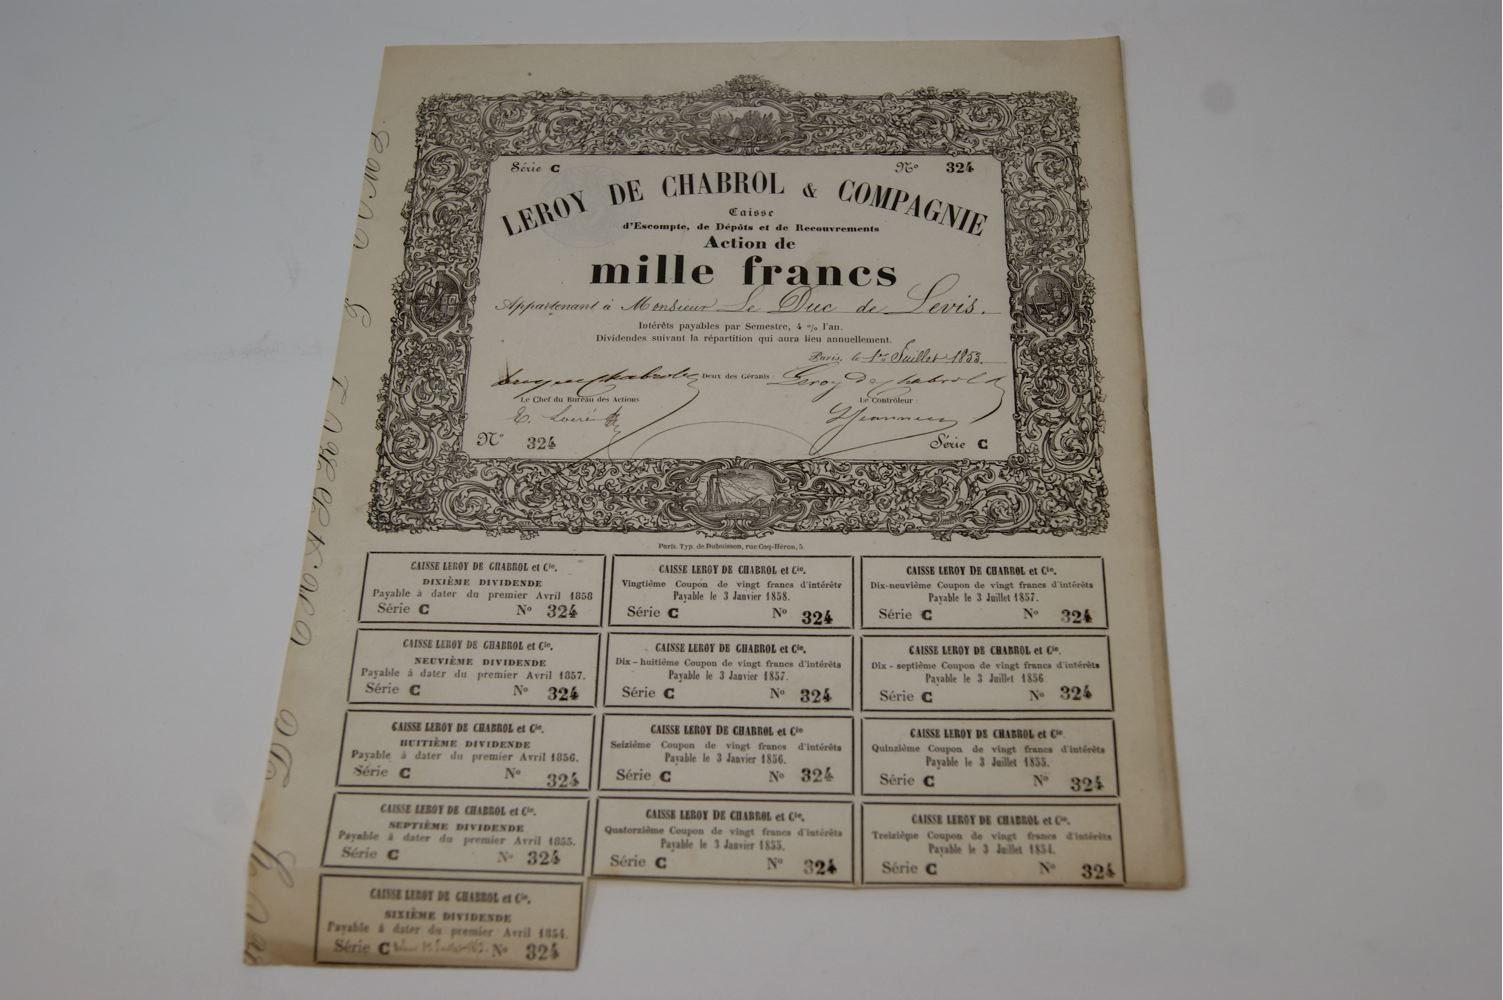 Série C Nº 324
LEROY DE CHABROL & COMPAGNIE
Caisse
d'Escompte, de Dépôts et de Recouvrements
Action de
mille francs
Appartenant à Monsieur Le Duc de Levis.
Intérêts payables par Semestre, 4 % l'an.
Dividendes suivant la répartition qui aura lieu annuellement.
Paris, le 1er Juillet 1853.
Deux des Gérants: Leroy de Chabrol
Le Chef du Bureau des Actions Le Contrôleur:
Nº 324 Série C
Paris. Typ. de Dubuisson, rue Coq-Héron, 5.
CAISSE LEROY DE CHABROL et Cie.
DIXIÈME DIVIDENDE
Payable à dater du premier Avril 1858
Série C Nº 324
CAISSE LEROY DE CHABROL et Cie.
Vingtième Coupon de vingt francs d'intérêts
Payable le 3 Janvier 1858.
Série C Nº 324
CAISSE LEROY DE CHABROL et Cie.
Dix-neuvième Coupon de vingt francs d'intérêts
Payable le 3 Juillet 1857.
Série C Nº 324
CAISSE LEROY DE CHABROL et Cie.
NEUVIÈME DIVIDENDE
Payable à dater du premier Avril 1857.
Série C Nº 324
CAISSE LEROY DE CHABROL et Cie.
Dix-huitième Coupon de vingt francs d'intérêts
Payable le 3 Janvier 1857.
Série C Nº 324
CAISSE LEROY DE CHABROL et Cie.
Dix-septième Coupon de vingt francs d'intérêts
Payable le 3 Juillet 1856
Série C Nº 324
CAISSE LEROY DE CHABROL et Cie.
HUITIÈME DIVIDENDE
Payable à dater du premier Avril 1856.
Série C Nº 324
CAISSE LEROY DE CHABROL et Cie
Seizième Coupon de vingt francs d'intérêts
Payable le 3 Janvier 1856.
Série C Nº 324
CAISSE LEROY DE CHABROL et Cie.
Quinzième Coupon de vingt francs d'intérêts
Payable le 3 Juillet 1855.
Série C Nº 324
CAISSE LEROY DE CHABROL et Cie.
SEPTIÈME DIVIDENDE
Payable à dater du premier Avril 1855.
Série C Nº 324
CAISSE LEROY DE CHABROL et Cie.
Quatorzième Coupon de vingt francs d'intérêts
Payable le 3 Janvier 1855.
Série C Nº 324
CAISSE LEROY DE CHABROL et Cie.
Treizième Coupon de vingt francs d'intérêts
Payable le 3 Juillet 1854.
Série C Nº 324
CAISSE LEROY DE CHABROL et Cie.
SIXIÈME DIVIDENDE
Payable à dater du premier Avril 1854.
Série C Nº 324